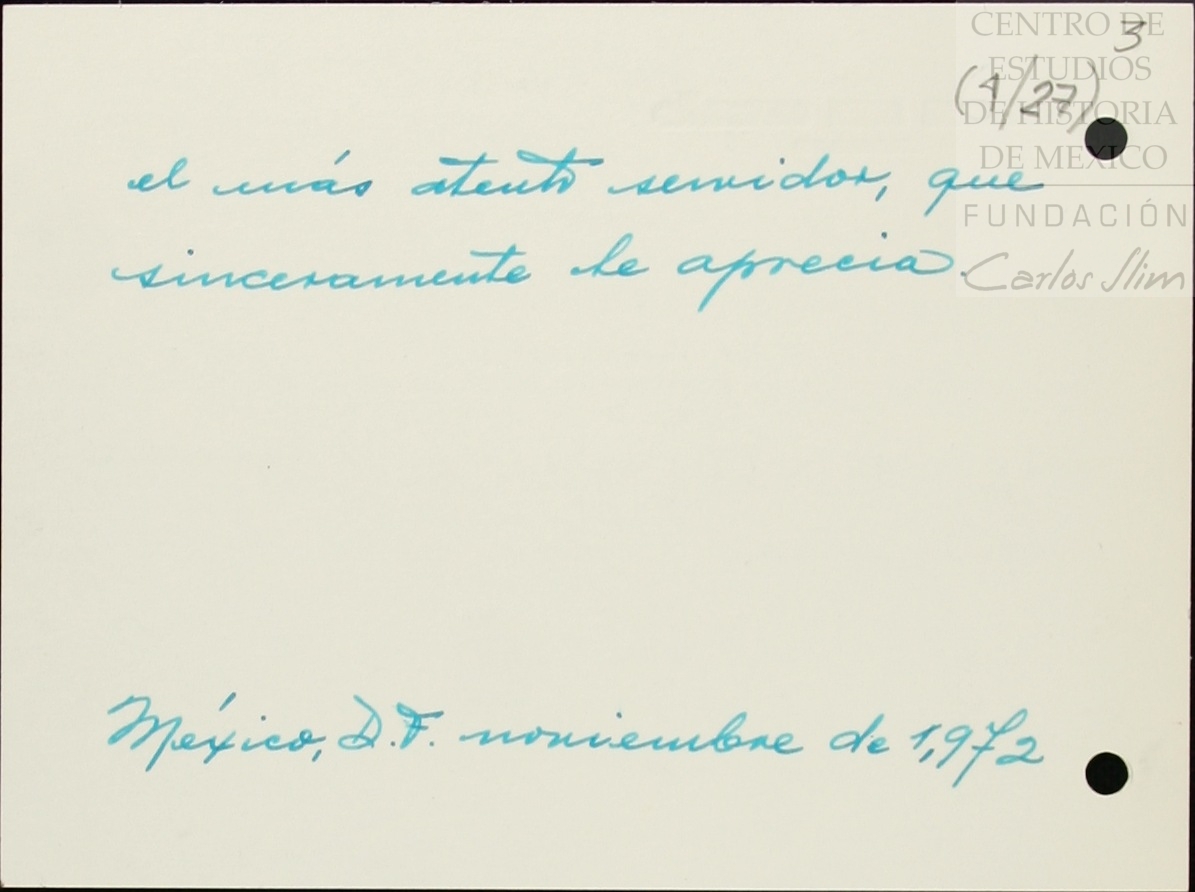 CENTRO DE
3
ESTUDIOS
(1/27)
DE HISTORIA
DE MEXICO
FUNDACIÓN
Carlos Slim
el más atento servidor, que
sinceramente le aprecia.
México, D.F. noviembre de 1,972